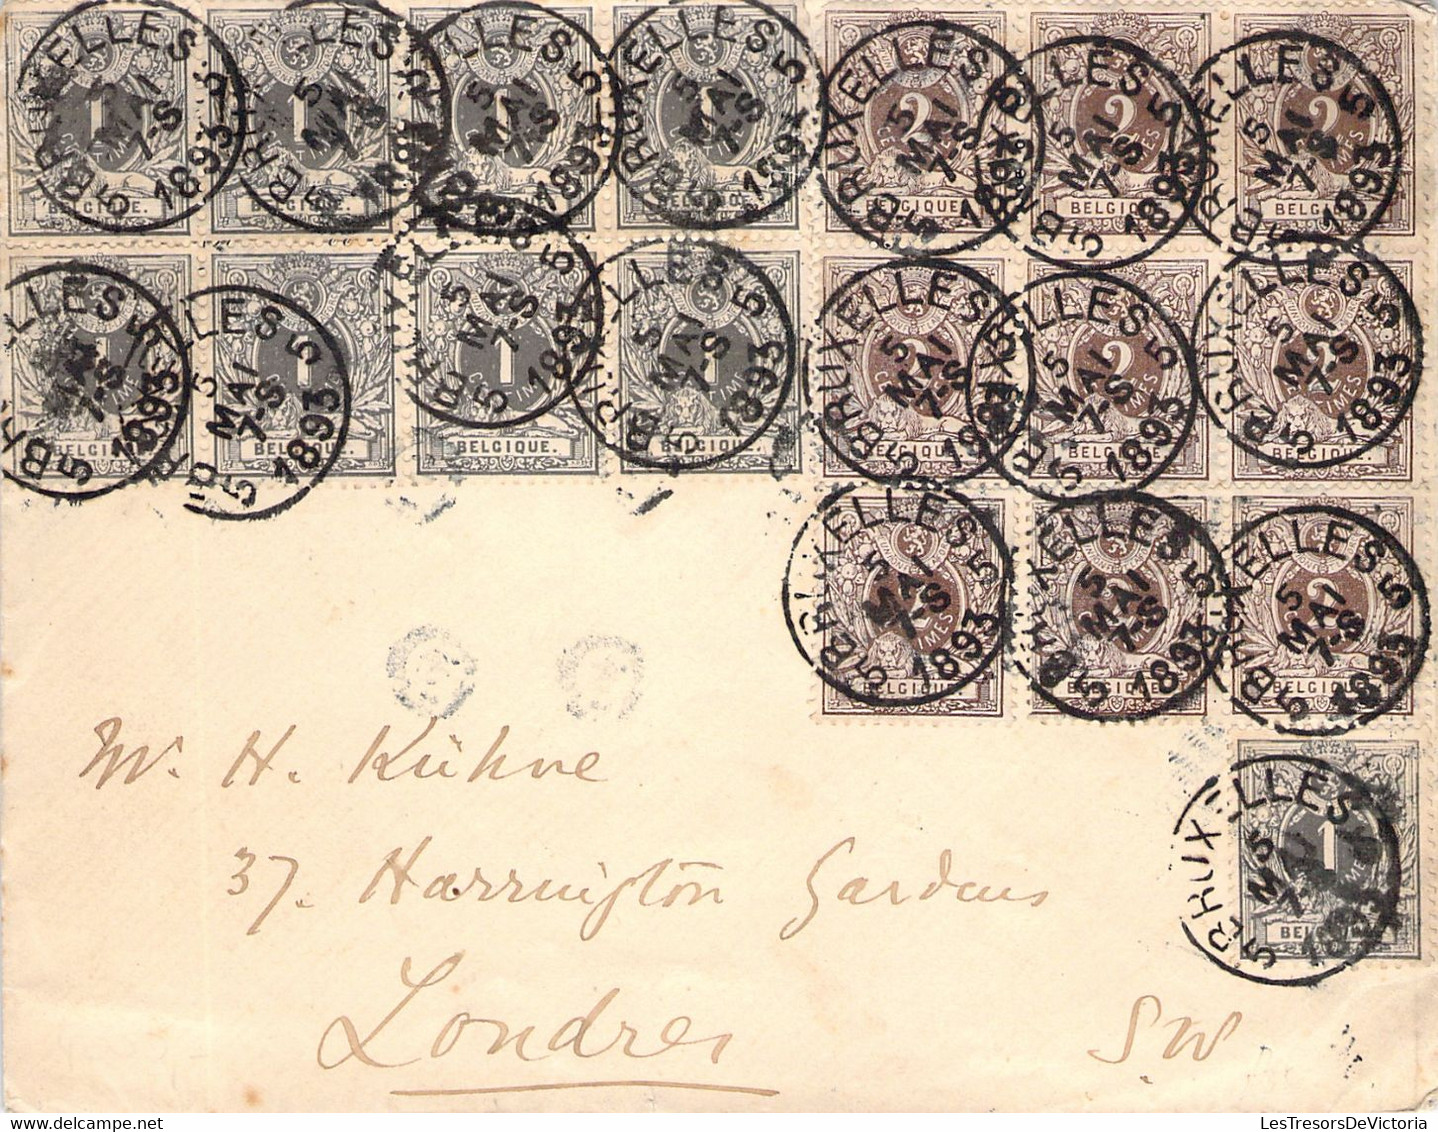 BRUXELLES 5
5 MAI
7-S
1893
1
CENTIMES
BELGIQUE.
2
CENTIMES
BELGIQUE.
Mr. H. Kühne
37. Harrington Gardens
Londres
S.W
LesTresorsDeVictoria